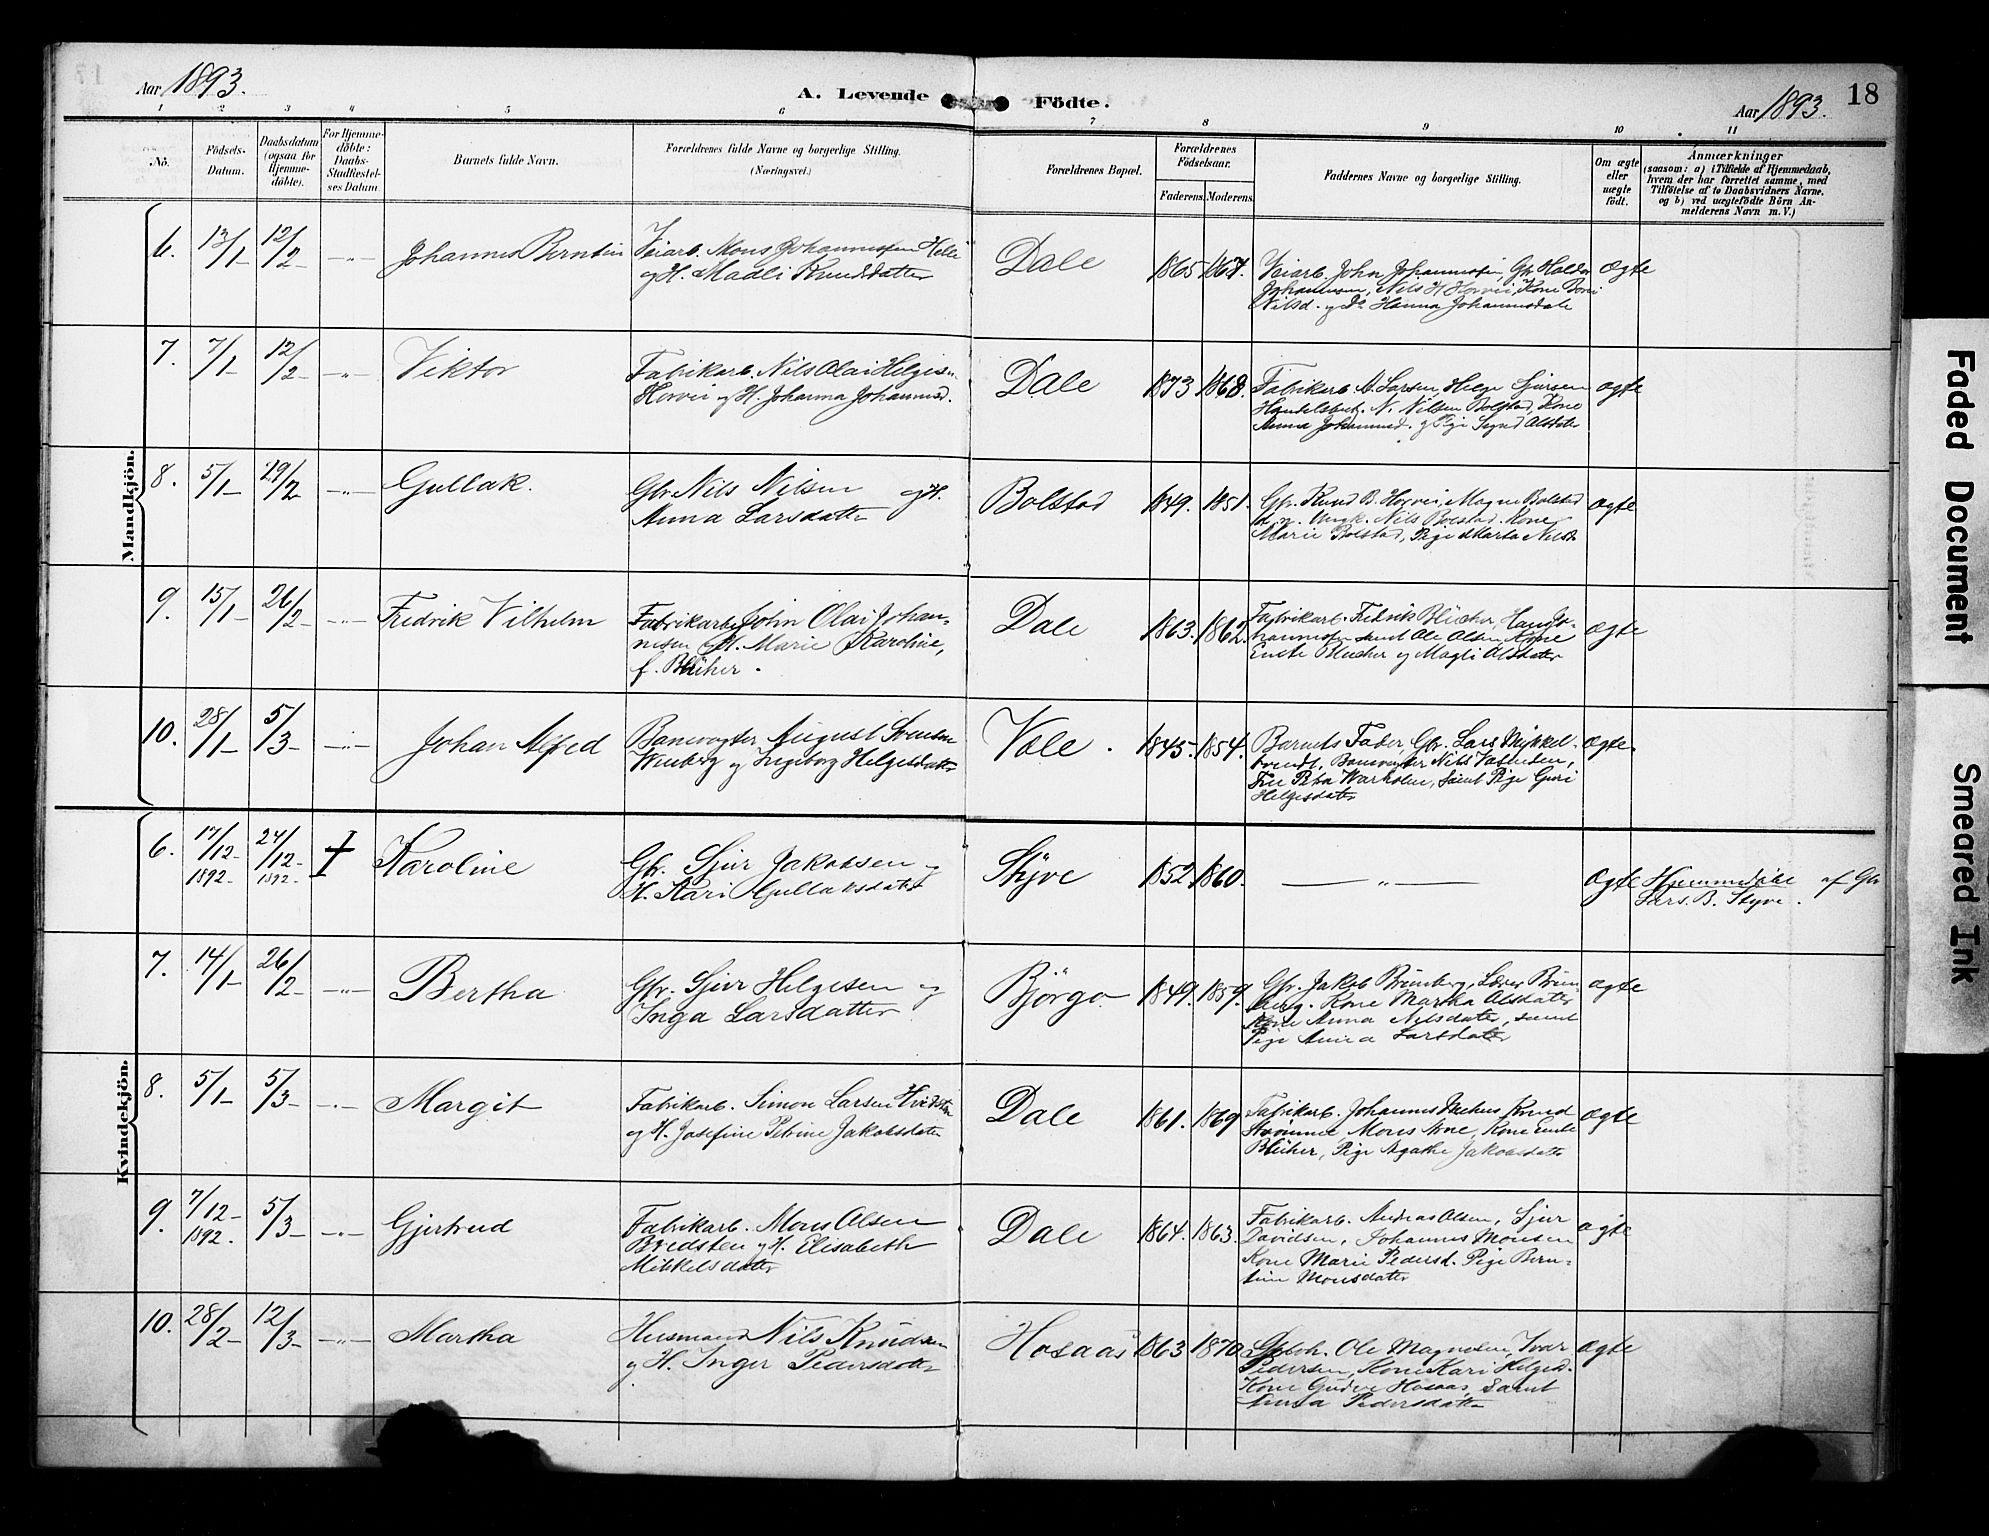 Aar 1893.
A. Levende Födte.
Aar 1893.
18
1 2 3 4 5 6 7 8 9 10 11
No.
Födsels-Datum.
Daabsdatum (ogsaa for Hjemme-döbte).
For Hjemme-döbte: Daabs-Stadfæstel-ses Datum.
Barnets fulde Navn.
Forældrenes fulde Navne og borgerlige Stilling.
(Næringsvei.)
Forældrenes Bopæl.
Forældrenes Födselsaar.
Faderens. Moderens.
Faddernes Navne og borgerlige Stilling.
Om ægte eller uægte födt.
Anmærkninger
(saasom: a) i Tilfælde af Hjemmedaab,
hvem der har forrettet samme, med
Tilföielse af to Daabsvidners Navne,
og b) ved uægtefödte Börn An-
melderens Navn m. V.)
Mandkjön.
6. 13/1 12/2 -"- Johannes Berntin
Veiarb. Mons Johannessen Helle
og H. Madli Knudsdatter
Dale 1865 1867.
Veiarb. John Johannessen, Gbr. Haldor
Johannesen, Nils H. Horvei, Kone Brni
Nilsd. og Do Hanna Johannesdatr
Ægte
7. 7/1 12/2 -"- Viktor
Fabrikarb. Nils Olai Helges=
Horvei og H. Johanna Johannesd.
Dale 1873 1868.
Fabrikarb. A. Larsen, Helge Sjursen
Handelsbet. N. Nilsen Bolstad, Kone
Anna Johannesd. og Pige Sygni Olsdatr
Ægte
8. 5/1 19/2 -"- Gullak.
Gbr. Nils Nilsen og H.
Anna Larsdatter
Bolstad 1849. 1851.
Gbr. Knud B. Horvei, Magne Bolstad
Ungk. Nils Bolstad. Kone
Marie Bolstad, Pige Marta Nilsd.
Ægte
9. 15/1 26/2 -"- Fredrik Vilhelm
Fabrikarb. John Olai Johan-
nesen og H. Marie Karoline,
f. Blücher.
Dale 1863. 1862.
Fabrikarb. Fredrik Blücher, Hans Jo-
hannessen samt Ole Olsen, Kone
Emilie Blücher og Magli Olsdatter
Ægte
10. 28/1 5/3 -"- Johan Alfred
Banevogter August Svensen
Wenberg og Ingeborg Helgesdatter
Vale. 1845. 1854.
Barnets Fader, Gbr. Lars Mykkel-
tvedt, Banevogter Nils Vathesen,
Fru Petra Warholm, samt Pige Guri
Helgesdatter
Ægte.
Kvindekjön.
6. 17/12 1892. 24/12 1892. Karoline
Gbr. Sjur Jakobsen og
H. Kari Gullaksdatter
Styve 1852. 1860.
-"-
Ægte
Hjemmedöbt af Gbr
Lars. B. Styve.
7. 14/1 26/2 -"- Bertha
Gbr. Sjur Helgesen og
Inga Larsdatter
Björgo 1849. 1859.
Gbr. Jakob Brunberg, Lærer Brun
berg. Kone Martha Olsdatter
Kone Anna Nilsdatter, samt
Pige Anna Larsdatter
Ægte
8. 5/1 5/3 -"- Margit
Fabrikarb. Simon Larsen Hvidsten
og H. Josefine Petrine Jakobsdatter
Dale 1861. 1869
Fabrikarb. Johannes Mehus, Knud
Strömme, Mons Moe, Kone Emilie
Blücher, Pige Agathe Jakobsdatter
Ægte
9. 7/12 1892. 5/3 -"- Gjertrud
Fabrikarb. Mons Olsen
Bredsten og H. Elisabeth
Mikkelsdatter
Dale 1864. 1863.
Fabrikarb. Andreas Olsen, Sjur
Davidsen, Johannes Monsen
Kone Marie Pedersd. Pige Bern-
tine Monsdatter
ægte
10. 28/2 12/3 -"- Martha
Husmand Nils Knudsen
og H. Inger Pedersdatter
Hosaas 1863 1870
Gbr. Ole Magnesen, Ivar
Pedersen, Kone Kari Helgesd.
Kone Gudve Hosaas, samt
Anna Pedersdatter
ægte
Faded Document
Smeared Ink